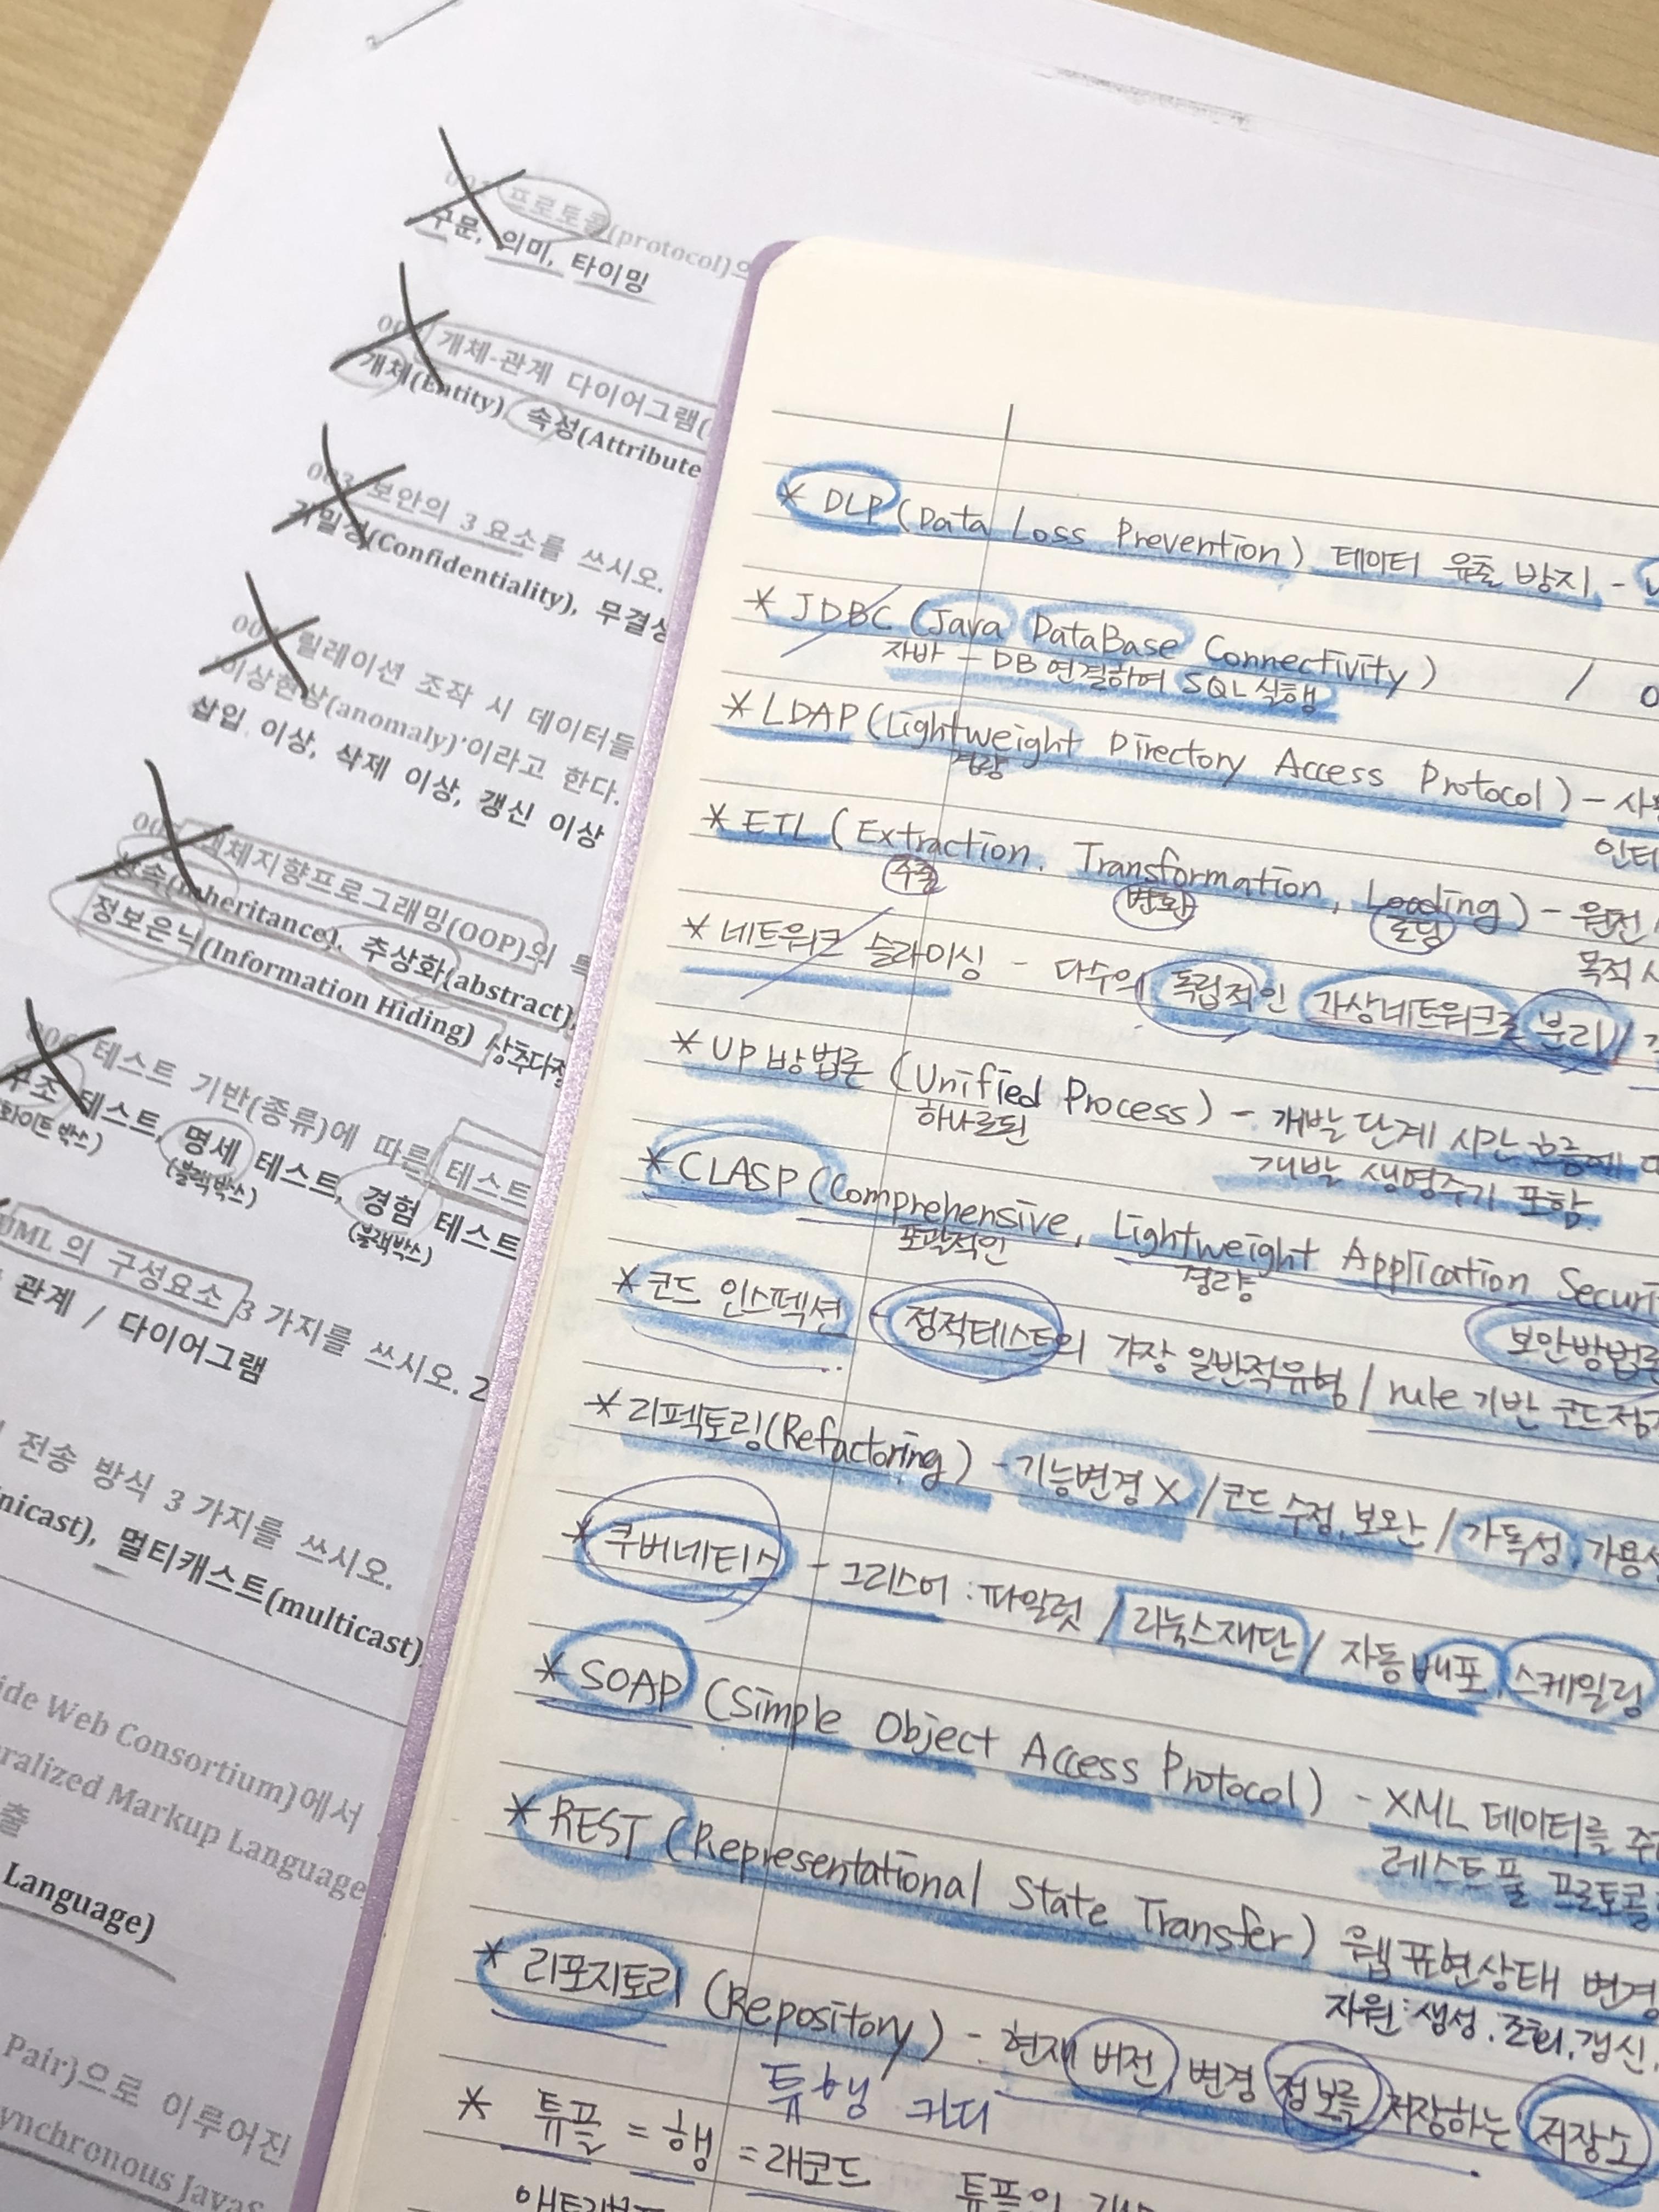 프로토콜(protocol)의
구문, 의미, 타이밍
개체-관계 다이어그램(
개체(Entity), 속성(Attribute
003 보안의 3 요소를 쓰시오.
기밀성(Confidentiality), 무결성
릴레이션 조작 시 데이터들
'이상현상(anomaly)'이라고 한다.
삽입 이상, 삭제 이상, 갱신 이상
객체지향프로그래밍(OOP)의 특
상속(Inheritance), 추상화(abstract),
정보은닉(Information Hiding) 상추다정
006 테스트 기반(종류)에 따른 테스트
구조 테스트, 명세 테스트, 경험 테스트
(화이트박스) (블랙박스) (블랙박스)
UML 의 구성요소 3 가지를 쓰시오. 2
관계 / 다이어그램
전송 방식 3 가지를 쓰시오.
nicast), 멀티캐스트(multicast),
ide Web Consortium)에서
eralized Markup Language
출
Language)
Pair)으로 이루어진
ynchronous JavaS
* DLP (Data Loss Prevention) 데이터 유출 방지 -
* JDBC (Java DataBase Connectivity) /
자바 - DB 연결하여 SQL 실행
* LDAP (Lightweight Directory Access Protocol) - 사용
경량 인터
* ETL (Extraction. Transformation, Loading) - 원천
추출 변환 로딩 목적 시
* 네트워크 슬라이싱 - 다수의 독립적인 가상네트워크로 분리 /
* UP 방법론 (Unified Process) - 개발 단계 시간 흐름에
하나로된 개발 생명주기 포함
* CLASP (Comprehensive, Lightweight Application Securit
포괄적인 경량 보안방법론
* 코드 인스펙션 - 정적테스트의 가장 일반적유형 / rule 기반 코드점
* 리팩토링(Refactoring) - 기능변경 X / 코드 수정, 보완 / 가독성, 가용성
* 쿠버네티스 - 그리스어 : 파일럿 / 리눅스재단 / 자동 배포, 스케일링
* SOAP (Simple Object Access Protocol) - XML 데이터를 주
레스트풀 프로토콜
* REST (Representational State Transfer) 웹 표현상태 변경
자원 : 생성. 조회. 갱신.
* 리포지토리 (Repository) - 현재 버전, 변경 정보를 저장하는 저장소
튜 행 카디
* 튜플 = 행 = 래코드 튜플의 개수
애트리뷰트